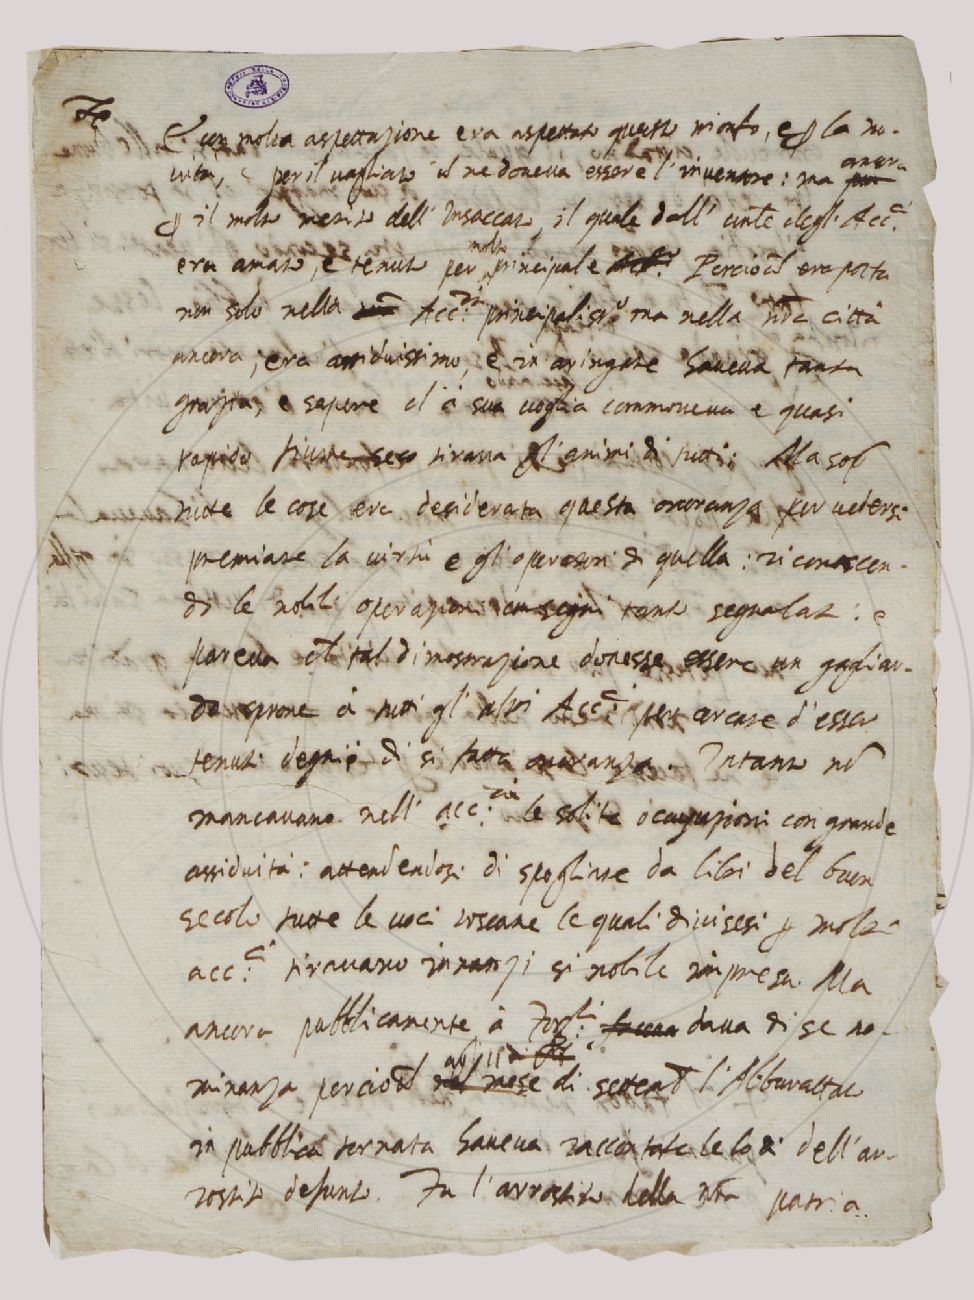 E con molta aspettazione era aspettato questo trionfo, e p la no-
vità, e per il vagliato che ne doveva essere l'inventore: ma ancora
p il molto merito dell'Insaccato, il quale dall' degl'Acc.ci
era amato, e tenuto per molto principale Percioché era posta
non solo nella Acc.a principaliss.o ma nella nra città
ancora, era assiduissimo, e in aringare haveva tanta
grazia, e sapere ch'a sua voglia commoveva e quasi
rapido fiume seco tirava gl'animi di tutti: Ma sop
tutte le cose era desiderata questa onoranza per vedersi
premiare la virtù e gl'operatori di quella: riconoscen-
do le nobili operazioni con segni tanto segnalati: e
pareva ch tal dimostrazione dovesse essere un gagliar-
do sprone à tutti gl'altri Acc.ci per cercare d'esser
tenuti degni di si fatta onoranza. Intanto nō
mancavano nell'acc.cia le solite occupazioni con grande
assiduità: attendendosi di spogliare da libri del buon
secolo tutte le voci toscane le quali divisesi p molti
acc.ci tiravano innanzi si nobile impresa. Ma
ancora pubblicamente à dava di se no-
minanza percioch agl'11 di settemb l'Abburattato
in pubblica tornata haveva raccontate le lodi dell'ar-
rostito defunto. Fu l'arrostito della nra patria.